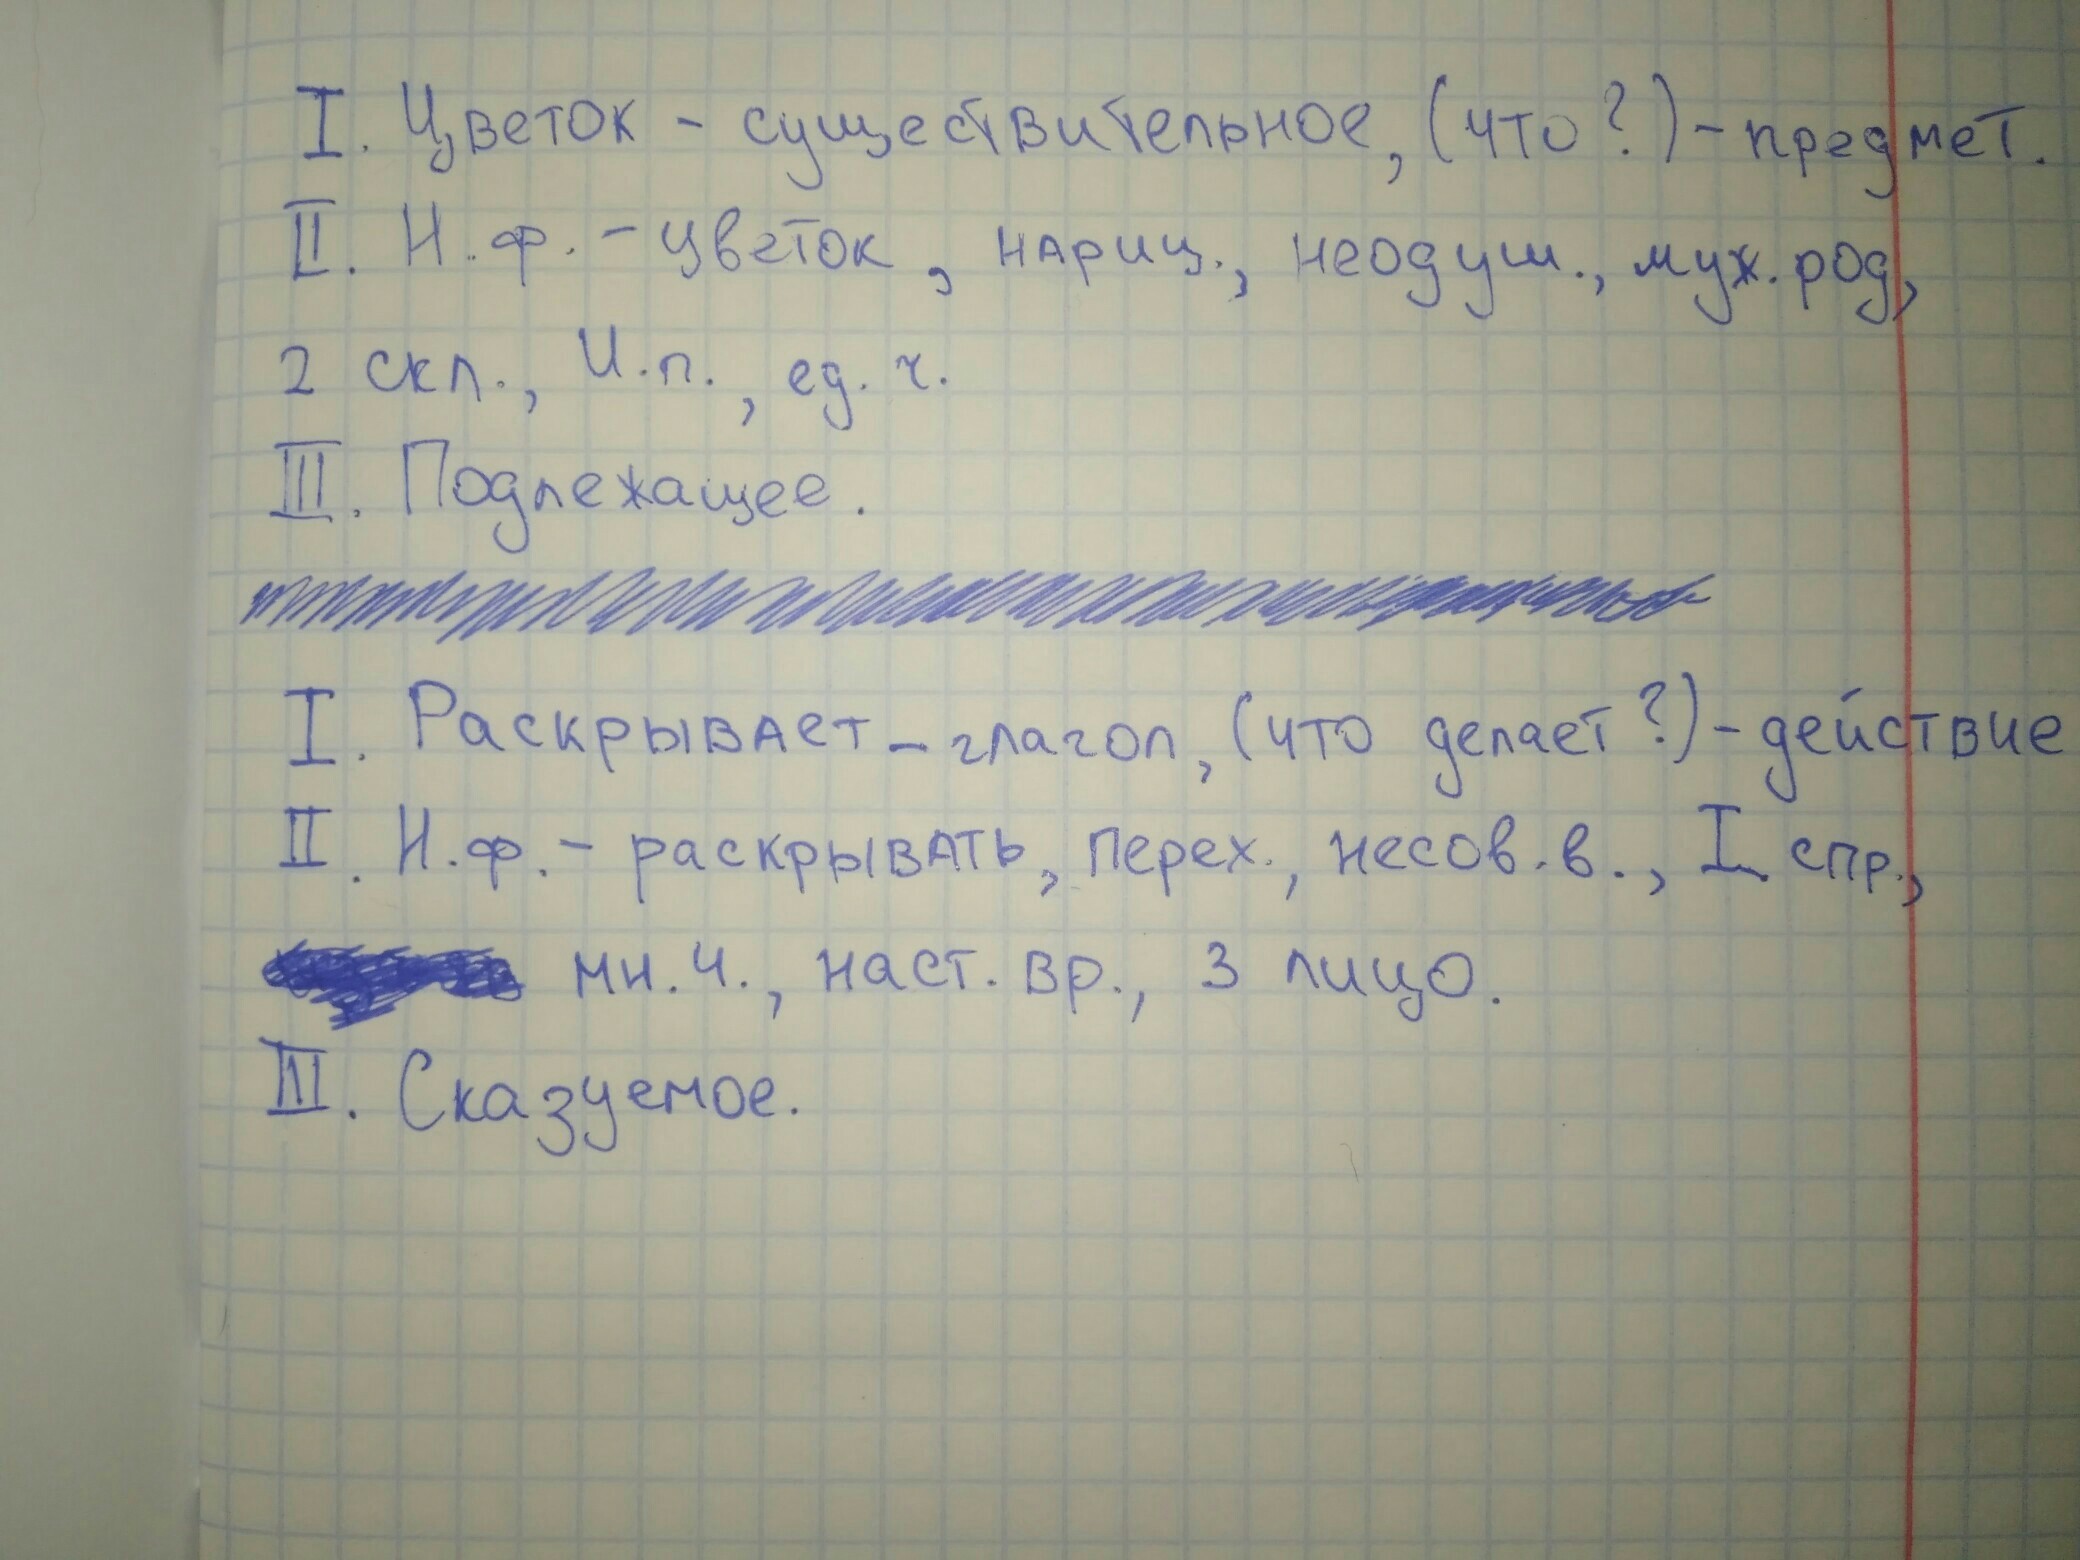 I. Цветок - существительное, (что?) - предмет.
II. Н.ф. - цветок, нариц., неодуш., муж. род,
2 скл., И.п., ед. ч.
III. Подлежащее.
I. Раскрывает - глагол, (что делает?) - действие
II. Н.ф. - раскрывать, перех., несов. в., I спр.,
мн. ч., наст. вр., 3 лицо.
III. Сказуемое.